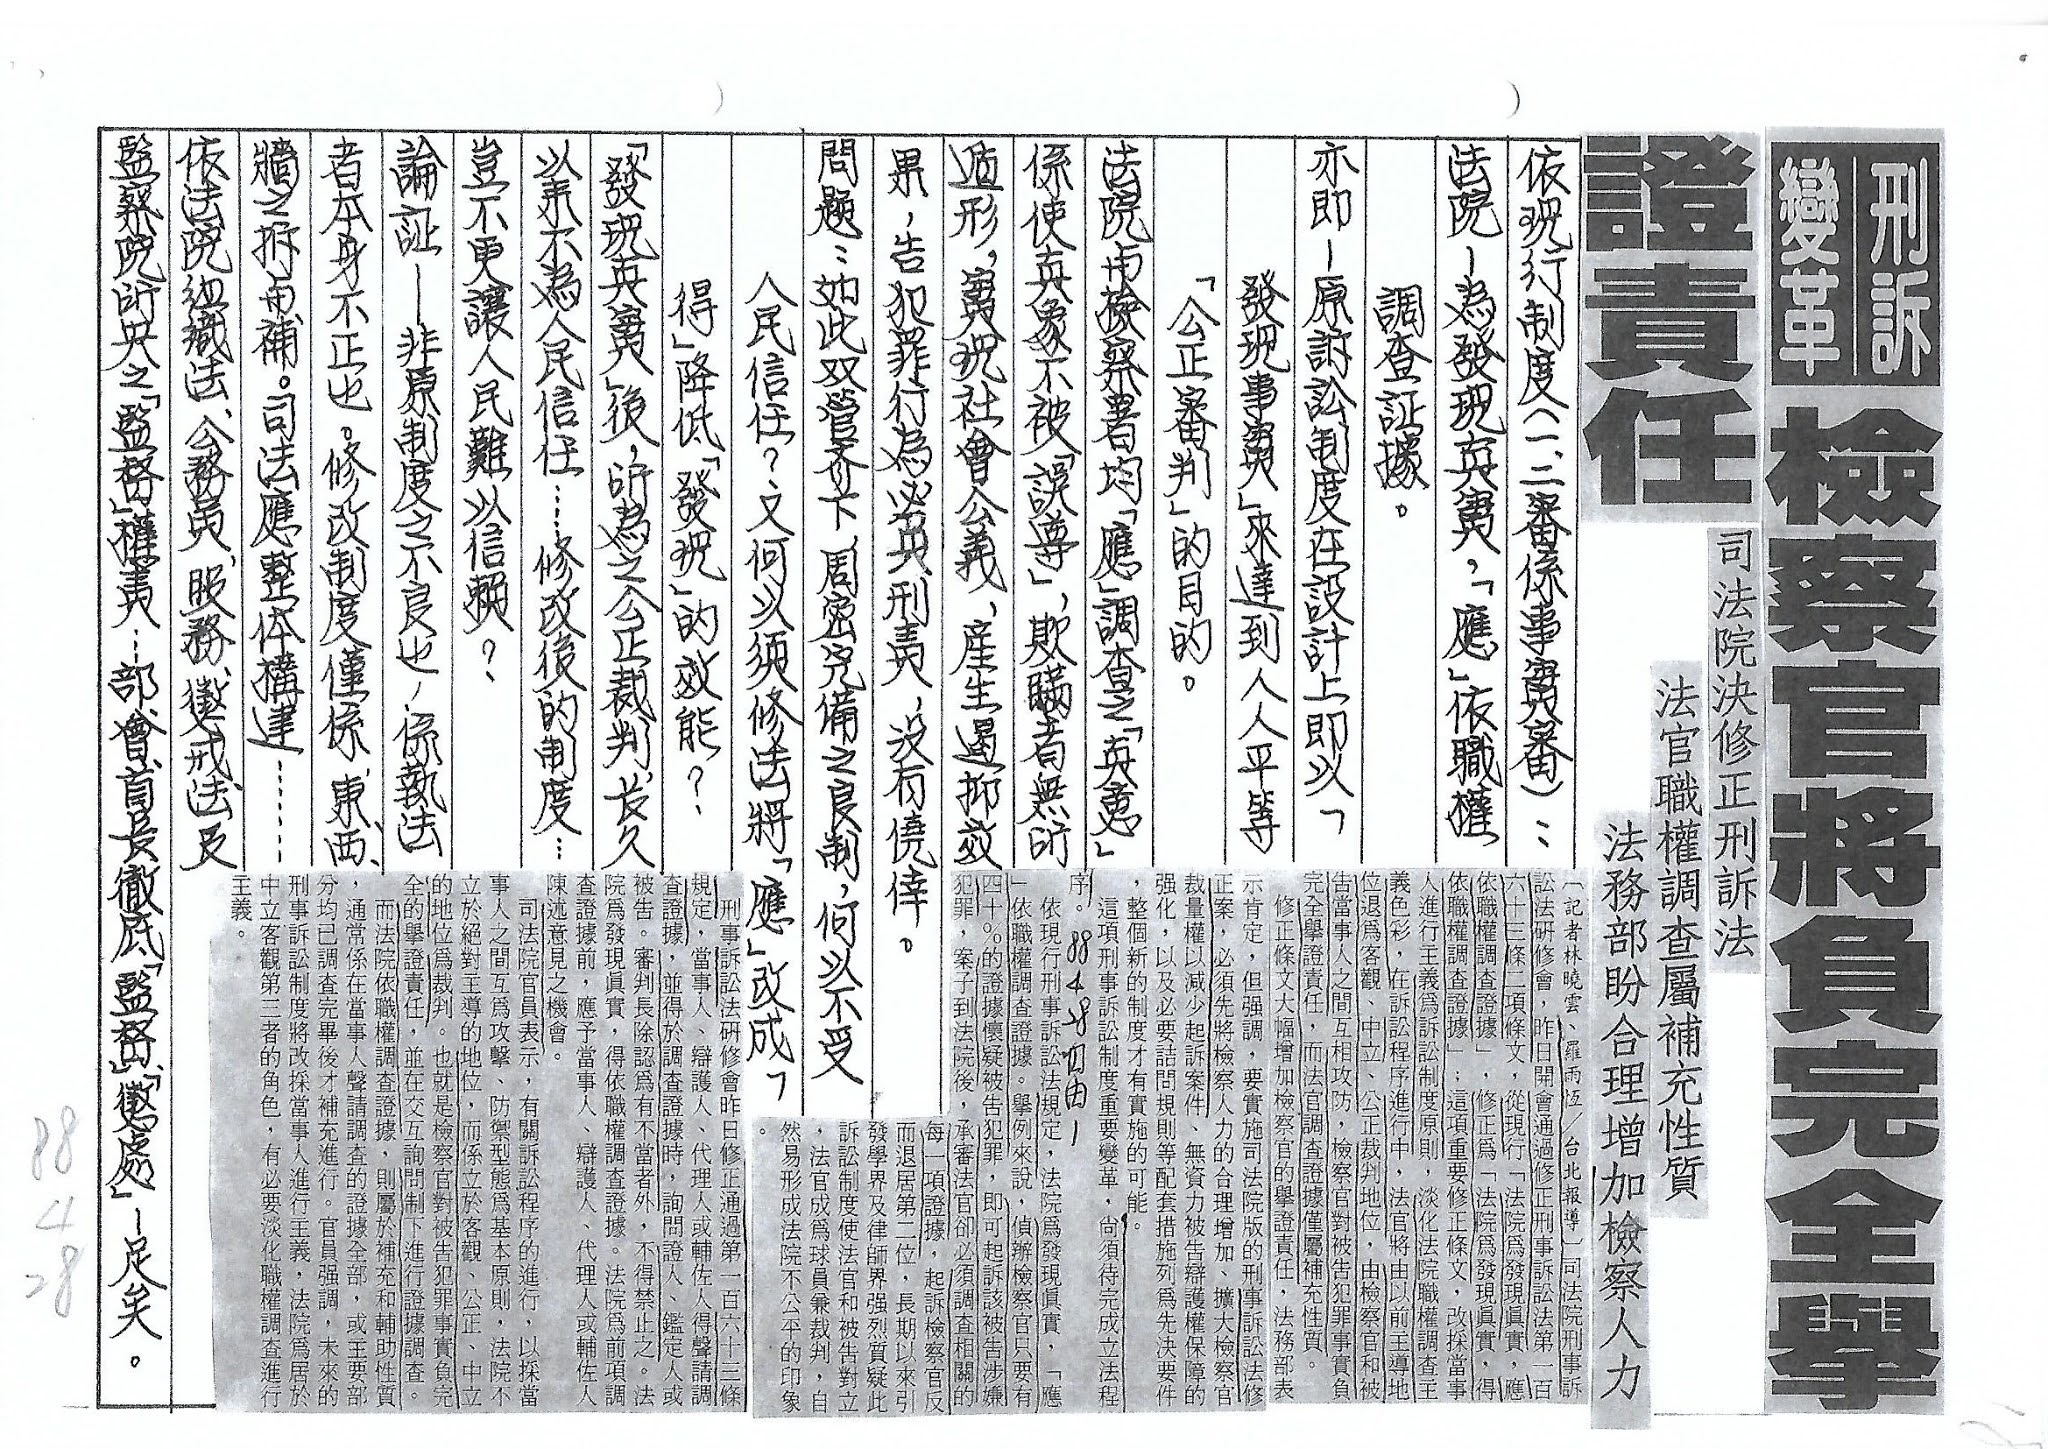 刑訴
變革
檢察官將負完全舉
證責任
司法院決修正刑訴法
法官職權調查屬補充性質
法務部盼合理增加檢察人力
依現行制度(一、二審係事實審)：
法院－為發現真實，「應」依職權
調查証據。
亦即－原訴訟制度在設計上即以「
發現事實」來達到人人平等
「公正審判」的目的。
法院甪檢察署均「應」調查之「真意」
係使真象不被「誤導」，欺瞞者無所
遁形，實現社會公義，產生遏抑效
果，告犯罪行為必英刑責，没有僥倖。
問題：如此双管齐下、周密完備之良制，何以不受
人民信任？又何以須修法將「應」改成「
得」降低「發現」的效能？
「發現真實」後，所為之公正裁判、長久
以來不為人民信任……修改後的制度…
豈不更讓人民難以信賴？
論証－－非原制度之不良也，係執法
者本身不正也。修改制度僅係、東西、
牆之拆甪補。司法應整体構建………
依法院组織法、公務員、服務、懲戒法、及
監察院所央之「監督」權責…部、會、首長徹底「監督」、「懲處」－足矣。
〔記者林曉雲、羅雨恆／台北報導〕司法院刑事訴
訟法研修會，昨日開會通過修正刑事訴訟法第一百
六十三條二項條文，從現行「法院為發現真實，應
依職權調查證據」，修正為「法院為發現真實，得
依職權調查證據」；這項重要修正條文，改採當事
人進行主義為訴訟制度原則，淡化法院職權調查主
義色彩，在訴訟程序進行中，法官將由以前主導地
位退為客觀、中立、公正裁判地位，由檢察官和被
告當事人之間互相攻防，檢察官對被告犯罪事實負
完全舉證責任，而法官調查證據僅屬補充性質。
修正條文大幅增加檢察官的舉證責任，法務部表
示肯定，但強調，要實施司法院版的刑事訴訟法修
正案，必須先將檢察人力的合理增加、擴大檢察官
裁量權以減少起訴案件、無資力被告辯護權保障的
強化，以及必要詰問規則等配套措施列為先決要件
，整個新的制度才有實施的可能。
這項刑事訴訟制度重要變革，尚須待完成立法程
序。88 4 28 自由－
依現行刑事訴訟法規定，法院為發現真實，「應
」依職權調查證據。舉例來說，偵辦檢察官只要有
四十％的證據懷疑被告犯罪，即可起訴該被告涉嫌
犯罪，案子到法院後，承審法官卻必須調查相關的
每一項證據，起訴檢察官反
而退居第二位，長期以來引
發學界及律師界強烈質疑此
訴訟制度使法官和被告對立
，法官成為球員兼裁判，自
然易形成法院不公平的印象
。
刑事訴訟法研修會昨日修正通過第一百六十三條
規定，當事人、辯護人、代理人或輔佐人得聲請調
查證據，並得於調查證據時，詢問證人、鑑定人或
被告。審判長除認為有不當者外，不得禁止之。法
院為發現真實，得依職權調查證據。法院為前項調
查證據前，應予當事人、辯護人、代理人或輔佐人
陳述意見之機會。
司法院官員表示，有關訴訟程序的進行，以採當
事人之間互為攻擊、防禦型態為基本原則，法院不
立於絕對主導的地位，而係立於客觀、公正、中立
的地位為裁判。也就是檢察官對被告犯罪事實負完
全的舉證責任，並在交互詢問制下進行證據調查。
而法院依職權調查證據，則屬於補充和輔助性質
，通常係在當事人聲請調查的證據全部，或主要部
分均已調查完畢後才補充進行。官員強調，未來的
刑事訴訟制度將改採當事人進行主義，法院為居於
中立客觀第三者的角色，有必要淡化職權調查進行
主義。
88
4
28